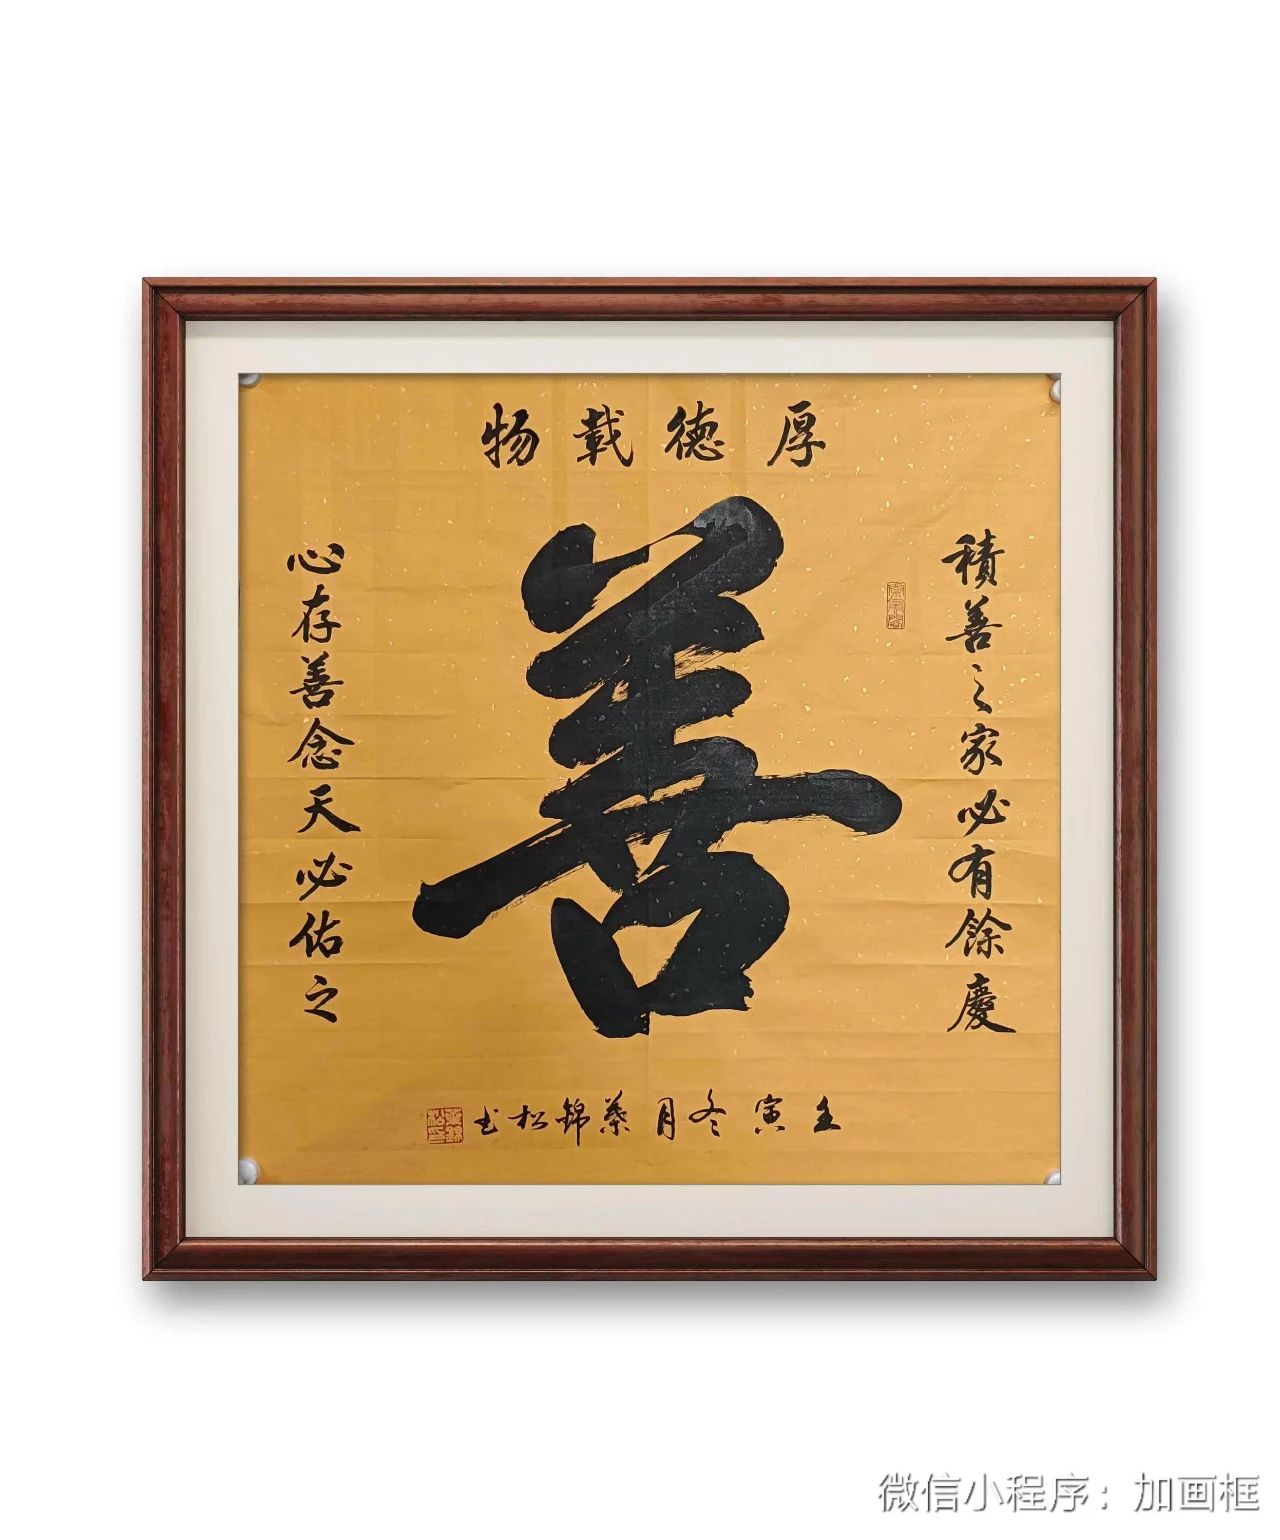 厚德載物
積善之家必有餘慶
善
心存善念天必佑之
壬寅冬月葉錦松书
微信小程序：加画框